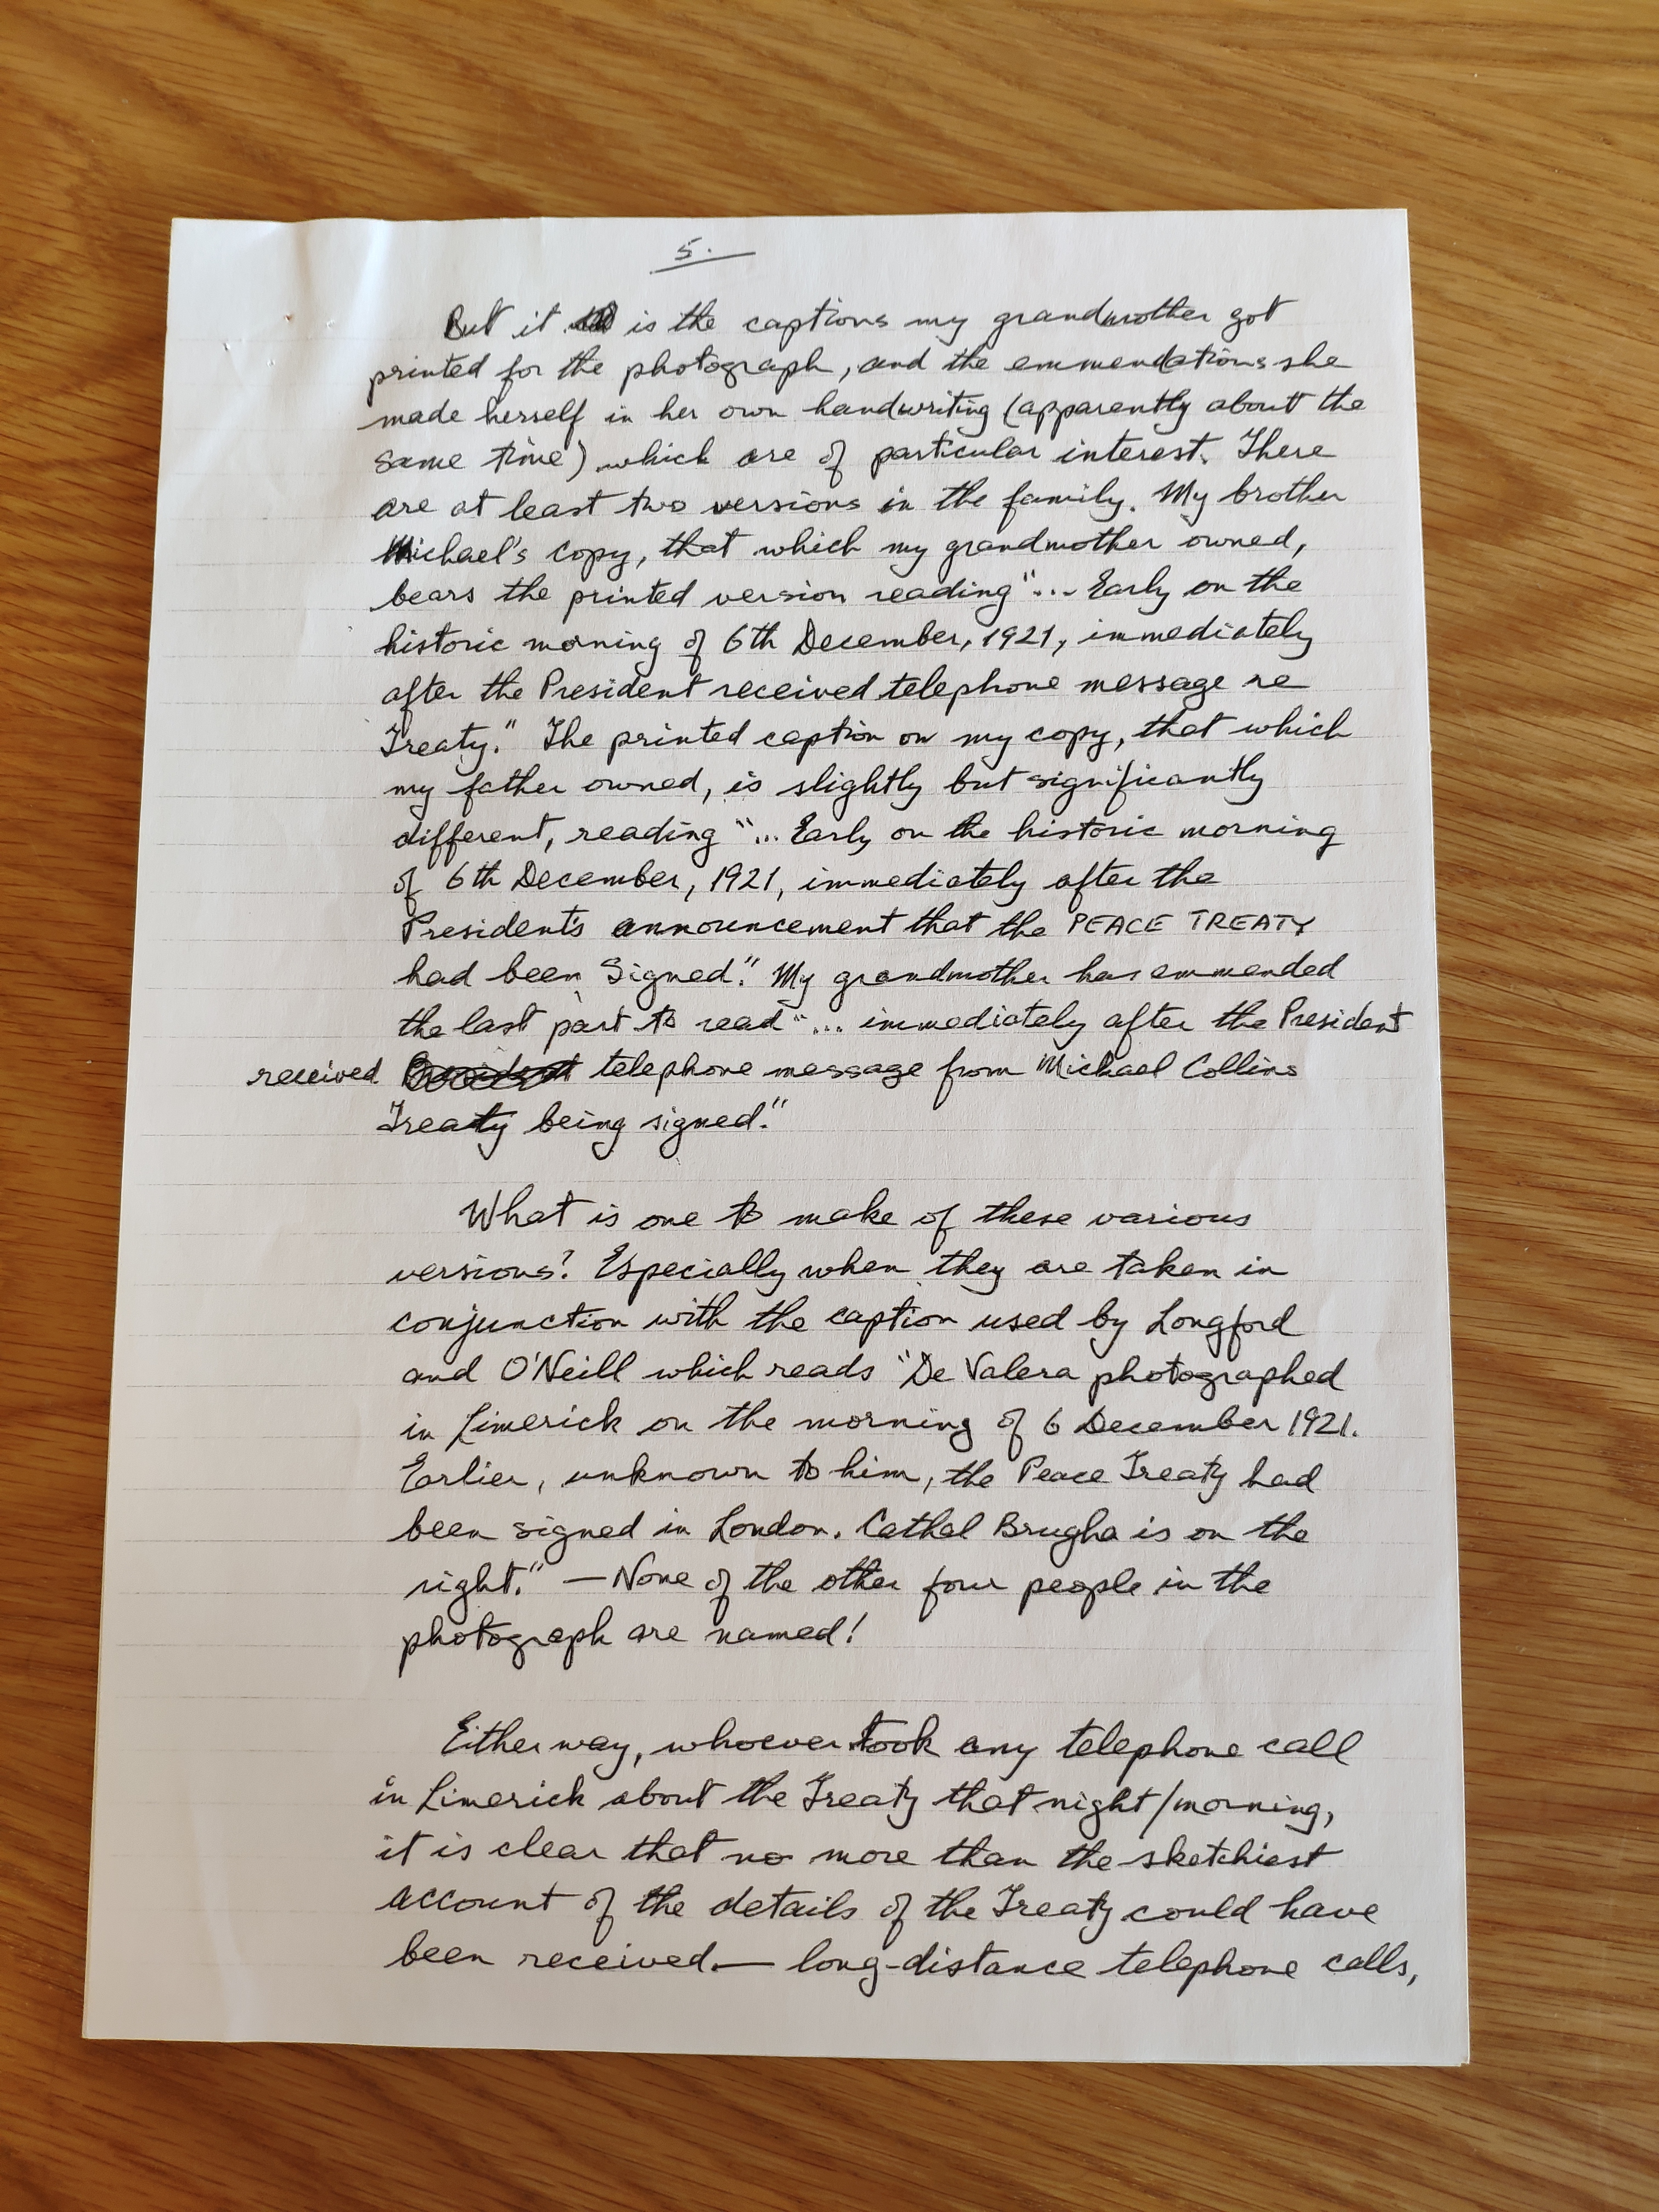 5.
But it is the captions my grandmother got
printed for the photograph, and the emmendations she
made herself in her own handwriting (apparently about the
same time) which are of particular interest. There
are at least two versions in the family. My brother
Michael's copy, that which my grandmother owned,
bears the printed version reading "... Early on the
historic morning of 6th December, 1921, immediately
after the President received telephone message re
Treaty." The printed caption on my copy, that which
my father owned, is slightly but significantly
different, reading "... Early on the historic morning
of 6th December, 1921, immediately after the
President's announcement that the PEACE TREATY
had been Signed". My grandmother has emmended
the last part to read "... immediately after the President
received telephone message from Michael Collins
Treaty being signed."
What is one to make of these various
versions? Especially when they are taken in
conjunction with the caption used by Longford
and O'Neill which reads "De Valera photographed
in Limerick on the morning of 6 December 1921.
Earlier, unknown to him, the Peace Treaty had
been signed in London. Cathal Brugha is on the
right." — None of the other four people in the
photograph are named!
Either way, whoever took any telephone call
in Limerick about the Treaty that night/morning,
it is clear that no more than the sketchiest
account of the details of the Treaty could have
been received — long-distance telephone calls,